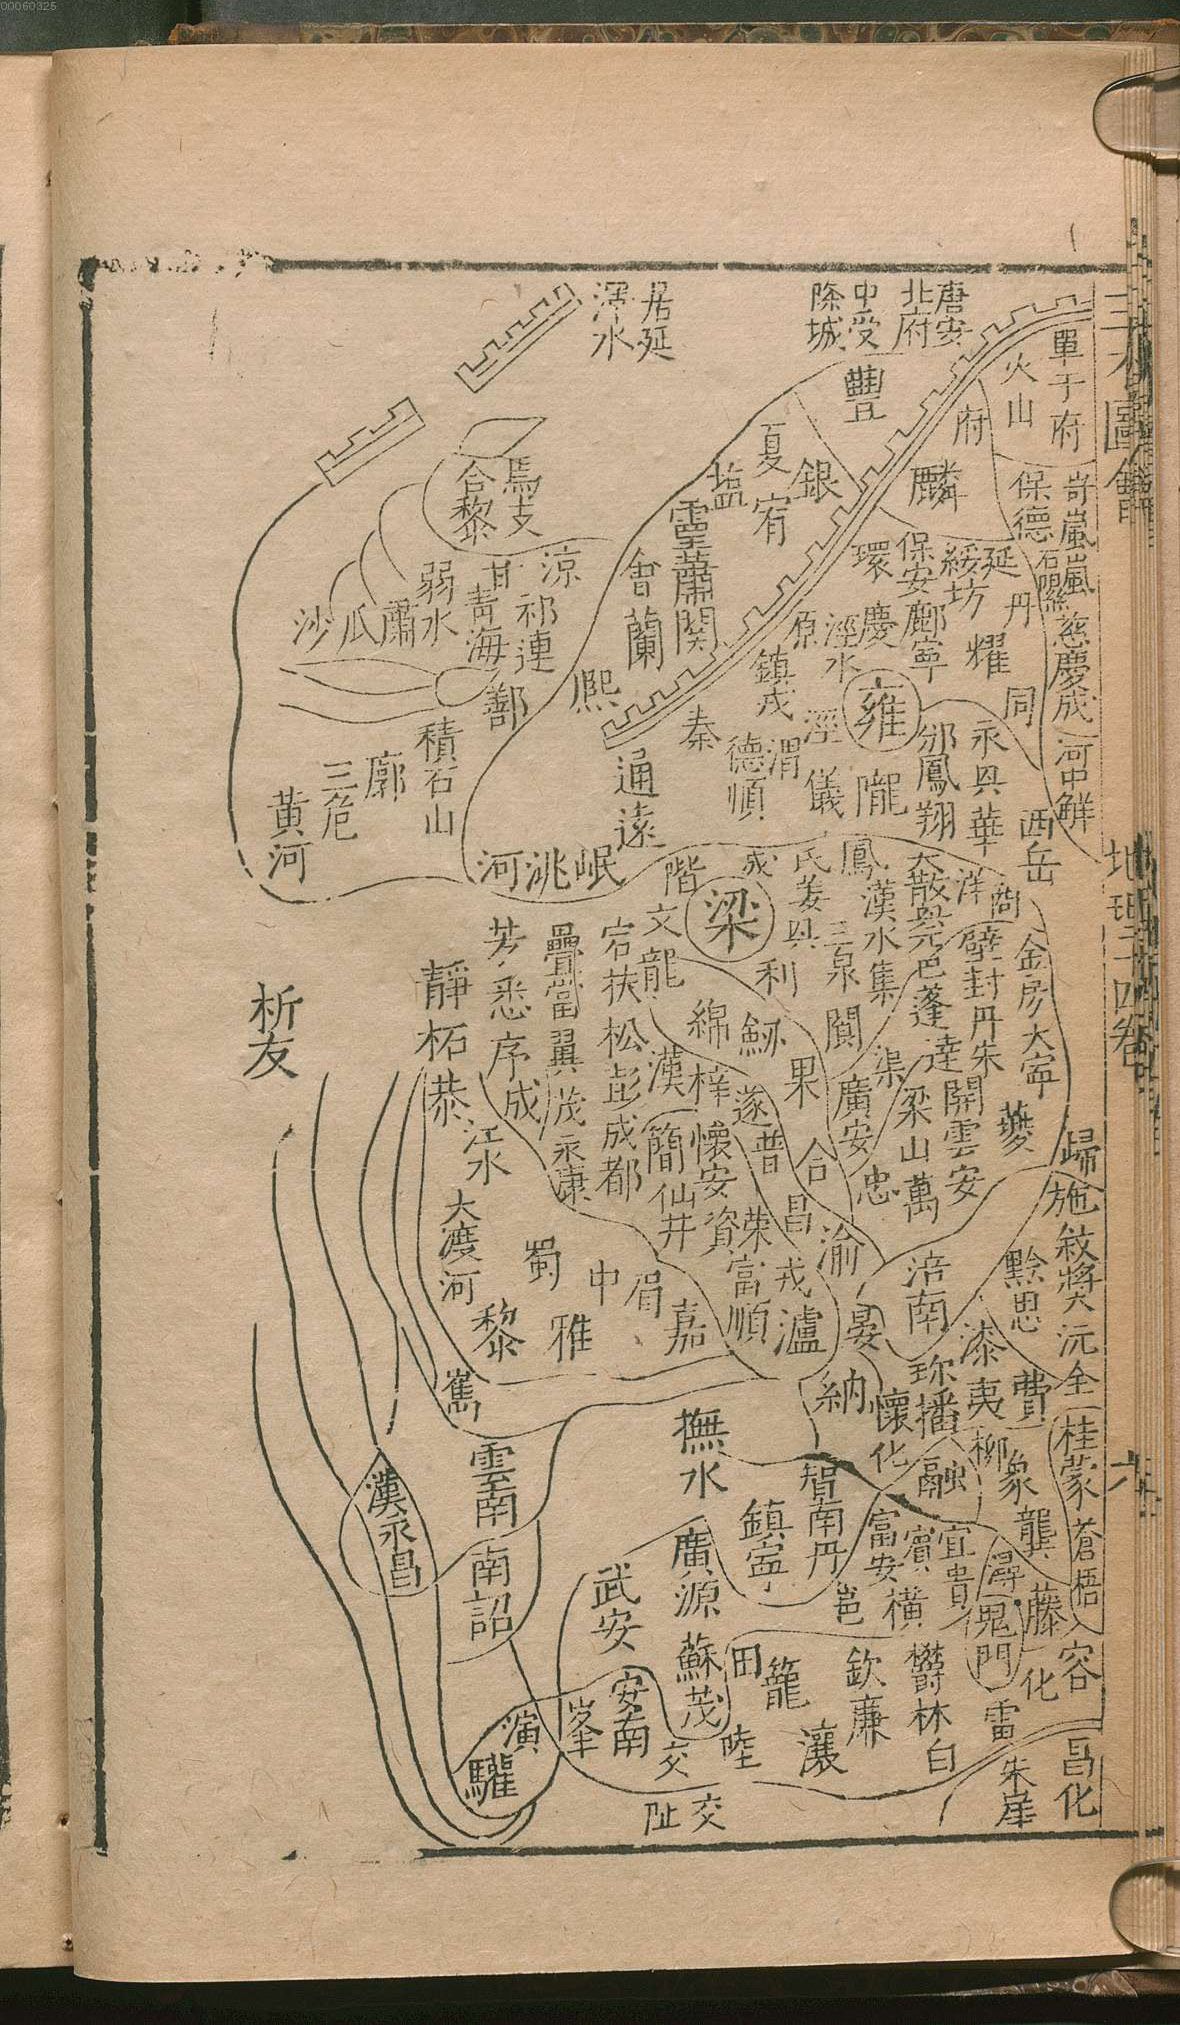 00060325
三才圖會
地理十四卷
六
單于府
火山
唐安
北府
中受
降城
居延
澤水
豐
府
麟
銀
夏
宥
塩
靈
蕭関
會
蘭
熙
岢嵐
嵐
石隰
慈
慶成
河中
觧
保德
延
丹
綏
坊
保安
鄜
寧
環
慶
耀
同
原
涇水
鎮戎
雍
涇
渭
德順
秦
儀
隴
邠
鳳翔
永興
華
西岳
通遠
馬支
合黎
涼
甘
祁連
青海
弱水
肅
瓜
沙
鄯
積石山
廓
三危
黃河
河
洮
岷
階
成
鳳
梁
文
龍
利
三泉
漢水
集
大散
洋
商
金
房
大寧
壁
巴
蓬
達
開
雲安
夔
歸
施
閬
果
渠
廣安
梁山
萬
忠
綿
漢
梓
遂
普
懷安
簡
仙井
資
榮
富順
合
昌
渝
瀘
宕
扶
松
彭
成都
疊
當
翼
茂
永康
芳
悉
序
成
靜
柘
恭
江水
大渡河
蜀
中
眉
嘉
雅
黎
嶲
析友
涪
南
黔
思
敘
獎
沅
全
桂
蒙
蒼梧
溱
夷
費
珍
播
晏
納
懷化
融
柳
象
龔
潯
藤
容
化
鬼門
撫水
智
南丹
鎮寧
富安
賓
宜
貴
橫
邕
欽
廉
鬱林
白
雷
朱崖
昌化
雲南
南詔
漢永昌
武安
廣源
蘇茂
田
籠
瀼
陸
安南
峯
交
交趾
演
驩